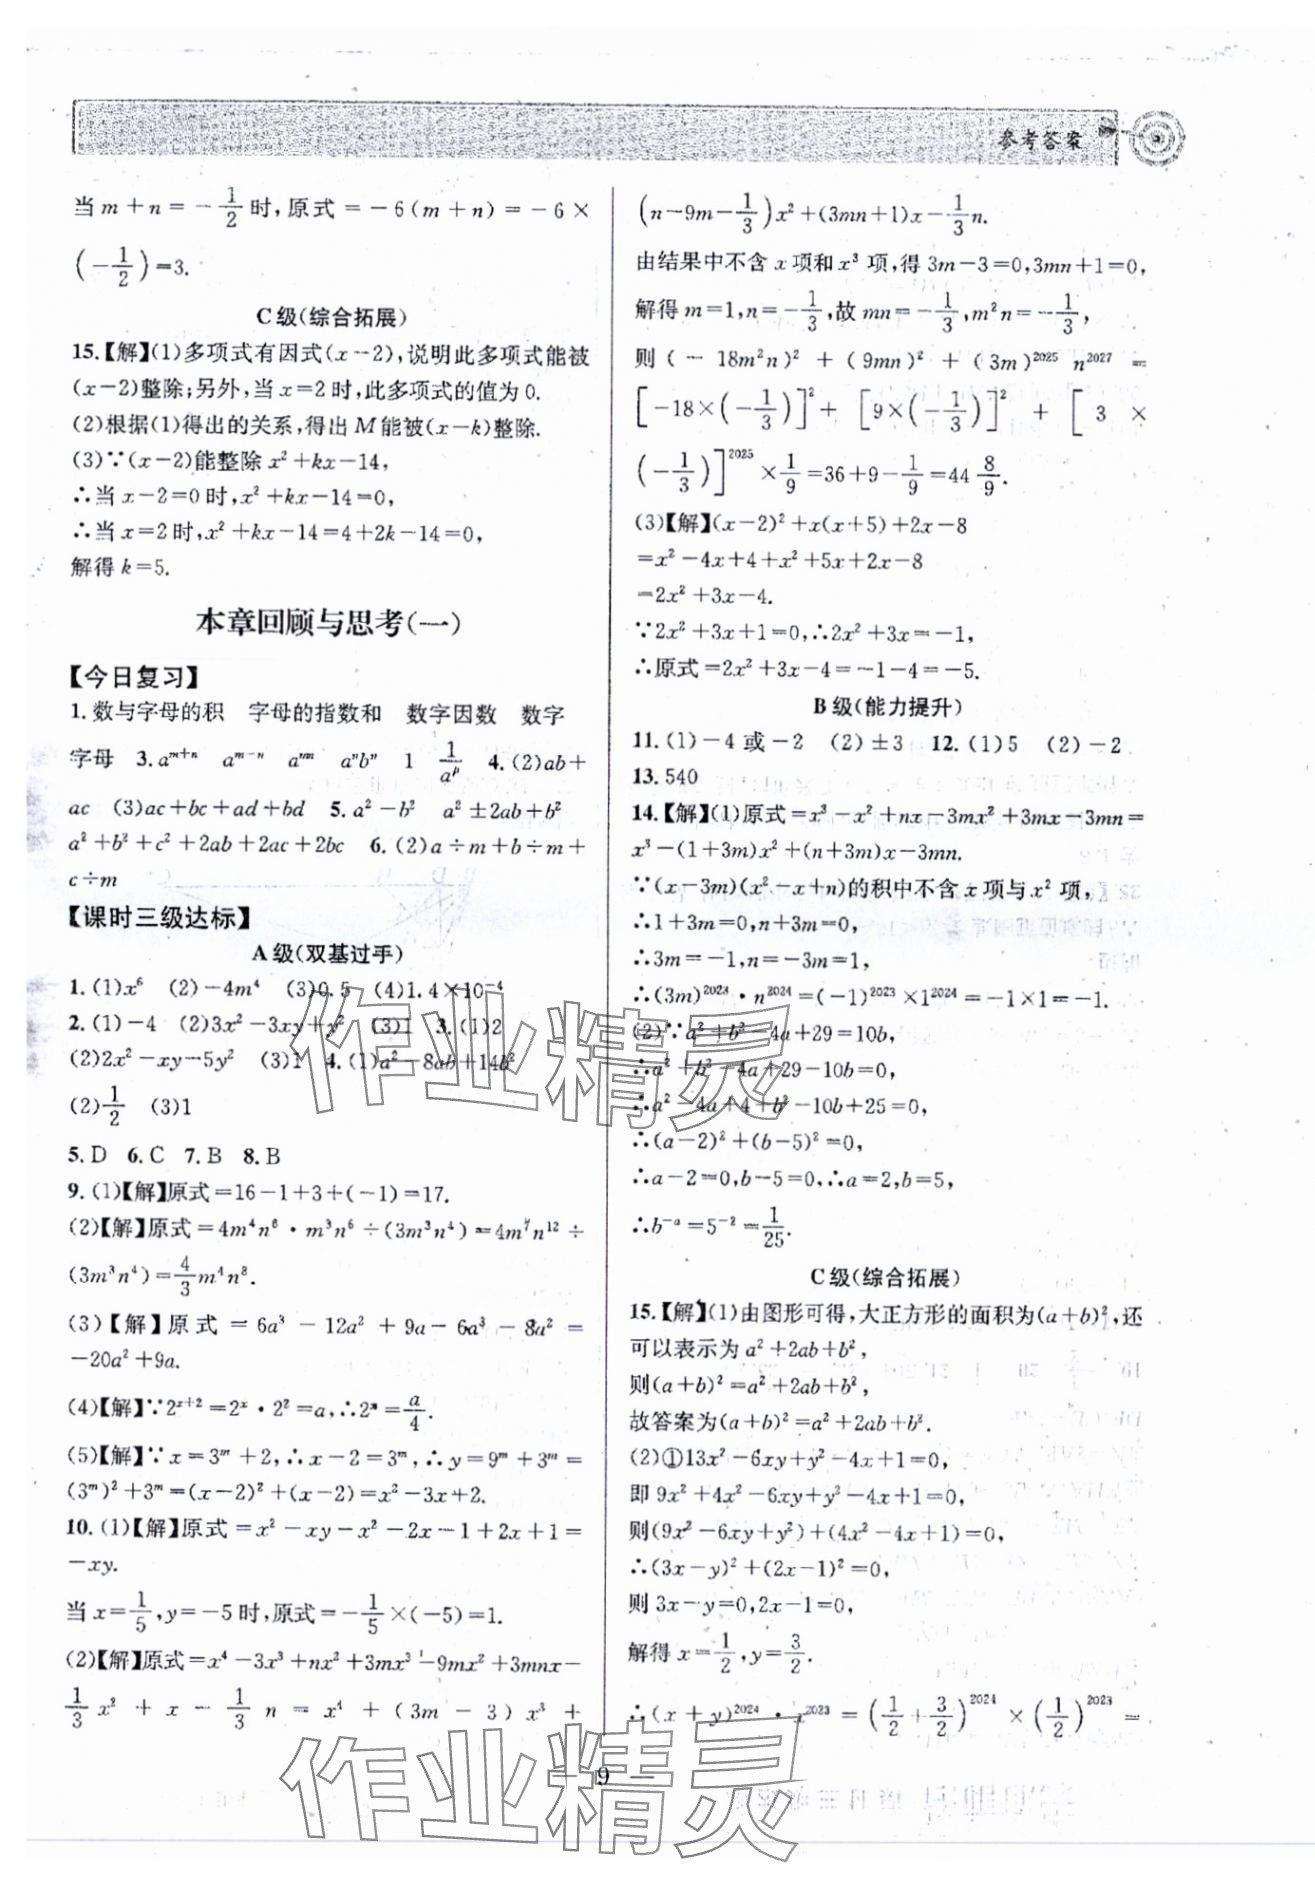 参考答案
当 m+n=-1/2 时,原式=-6(m+n)=-6×
(-1/2)=3.
C级(综合拓展)
15.【解】(1)多项式有因式(x-2),说明此多项式能被
(x-2)整除;另外,当 x=2 时,此多项式的值为 0.
(2)根据(1)得出的关系,得出 M 能被(x-k)整除.
(3)∵(x-2)能整除 x²+kx-14,
∴当 x-2=0 时,x²+kx-14=0,
∴当 x=2 时,x²+kx-14=4+2k-14=0,
解得 k=5.
本章回顾与思考(一)
【今日复习】
1.数与字母的积 字母的指数和 数字因数 数字
字母 3.aᵐ⁺ⁿ aᵐ⁻ⁿ aⁿᵐ aⁿbⁿ 1 1/aᵖ 4.(2)ab+
ac (3)ac+bc+ad+bd 5.a²-b² a²±2ab+b²
a²+b²+c²+2ab+2ac+2bc 6.(2)a÷m+b÷m+
c÷m
【课时三级达标】
A级(双基过手)
1.(1)x⁶ (2)-4m⁴ (3)0.5 (4)1.4×10⁻⁴
2.(1)-4 (2)3x²-3xy+y² (3)1 3.(1)2
(2)2x²-xy-5y² (3)1 4.(1)a²-8ab+14b²
(2)1/2 (3)1
5.D 6.C 7.B 8.B
9.(1)【解】原式=16-1+3+(-1)=17.
(2)【解】原式=4m⁴n⁶·m³n⁶÷(3m³n⁴)=4m⁷n¹²÷
(3m³n⁴)=4/3 m⁴n⁸.
(3)【解】原式=6a³-12a²+9a-6a³-8a²=
-20a²+9a.
(4)【解】∵2ˣ⁺²=2ˣ·2²=a,∴2ˣ=a/4.
(5)【解】∵x=3ᵐ+2,∴x-2=3ᵐ,∴y=9ᵐ+3ᵐ=
(3ᵐ)²+3ᵐ=(x-2)²+(x-2)=x²-3x+2.
10.(1)【解】原式=x²-xy-x²-2x-1+2x+1=
-xy.
当 x=1/5,y=-5 时,原式=-1/5×(-5)=1.
(2)【解】原式=x⁴-3x³+nx²+3mx³-9mx²+3mnx-
1/3 x²+x-1/3 n=x⁴+(3m-3)x³+
(n-9m-1/3)x²+(3mn+1)x-1/3 n.
由结果中不含 x 项和 x³ 项,得 3m-3=0,3mn+1=0,
解得 m=1,n=-1/3,故 mn=-1/3,m²n=-1/3,
则(-18m²n)²+(9mn)²+(3m)²⁰²⁵n²⁰²⁷=
[-18×(-1/3)]²+[9×(-1/3)]²+[3×
(-1/3)]²⁰²⁵×1/9=36+9-1/9=44 8/9.
(3)【解】(x-2)²+x(x+5)+2x-8
=x²-4x+4+x²+5x+2x-8
=2x²+3x-4.
∵2x²+3x+1=0,∴2x²+3x=-1,
∴原式=2x²+3x-4=-1-4=-5.
B级(能力提升)
11.(1)-4 或-2 (2)±3 12.(1)5 (2)-2
13.540
14.【解】(1)原式=x³-x²+nx-3mx²+3mx-3mn=
x³-(1+3m)x²+(n+3m)x-3mn.
∵(x-3m)(x²-x+n)的积中不含 x 项与 x² 项,
∴1+3m=0,n+3m=0,
∴3m=-1,n=-3m=1,
∴(3m)²⁰²³·n²⁰²⁴=(-1)²⁰²³×1²⁰²⁴=-1×1=-1.
(2)∵a²+b²-4a+29=10b,
∴a²+b²-4a+29-10b=0,
∴a²-4a+4+b²-10b+25=0,
∴(a-2)²+(b-5)²=0,
∴a-2=0,b-5=0,∴a=2,b=5,
∴b⁻ᵃ=5⁻²=1/25.
C级(综合拓展)
15.【解】(1)由图形可得,大正方形的面积为(a+b)²,还
可以表示为 a²+2ab+b²,
则(a+b)²=a²+2ab+b²,
故答案为(a+b)²=a²+2ab+b².
(2)①13x²-6xy+y²-4x+1=0,
即 9x²+4x²-6xy+y²-4x+1=0,
则(9x²-6xy+y²)+(4x²-4x+1)=0,
∴(3x-y)²+(2x-1)²=0,
则 3x-y=0,2x-1=0,
解得 x=1/2,y=3/2.
∴(x+y)²⁰²⁴·x²⁰²³=(1/2+3/2)²⁰²⁴×(1/2)²⁰²³=
— 9 —
作业精灵
作业精灵